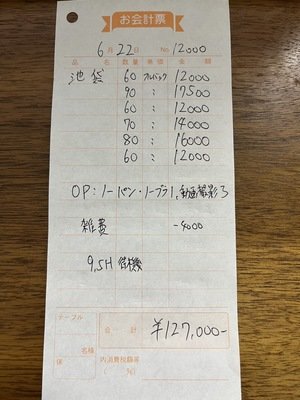 お会計票
6月22日 No. 12000
品名 数量 単価 金額
池袋 60 フルバック 12000
90 〃 17500
60 〃 12000
70 〃 14000
80 〃 16000
60 〃 12000
OP:ノーパン・ノーブラ1,動画撮影3
雑費 -4000
9.5H 待機
テーブル
名様
係
合計 ¥127,000-
内消費税額等
( %)